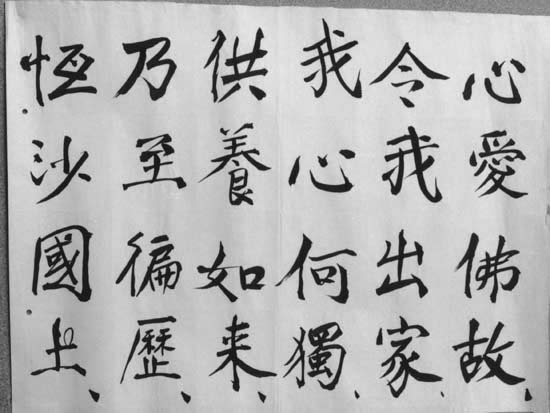 心愛佛故、
令我出家、
我心何獨、
供養如来、
乃至徧歷、
恆沙國土、